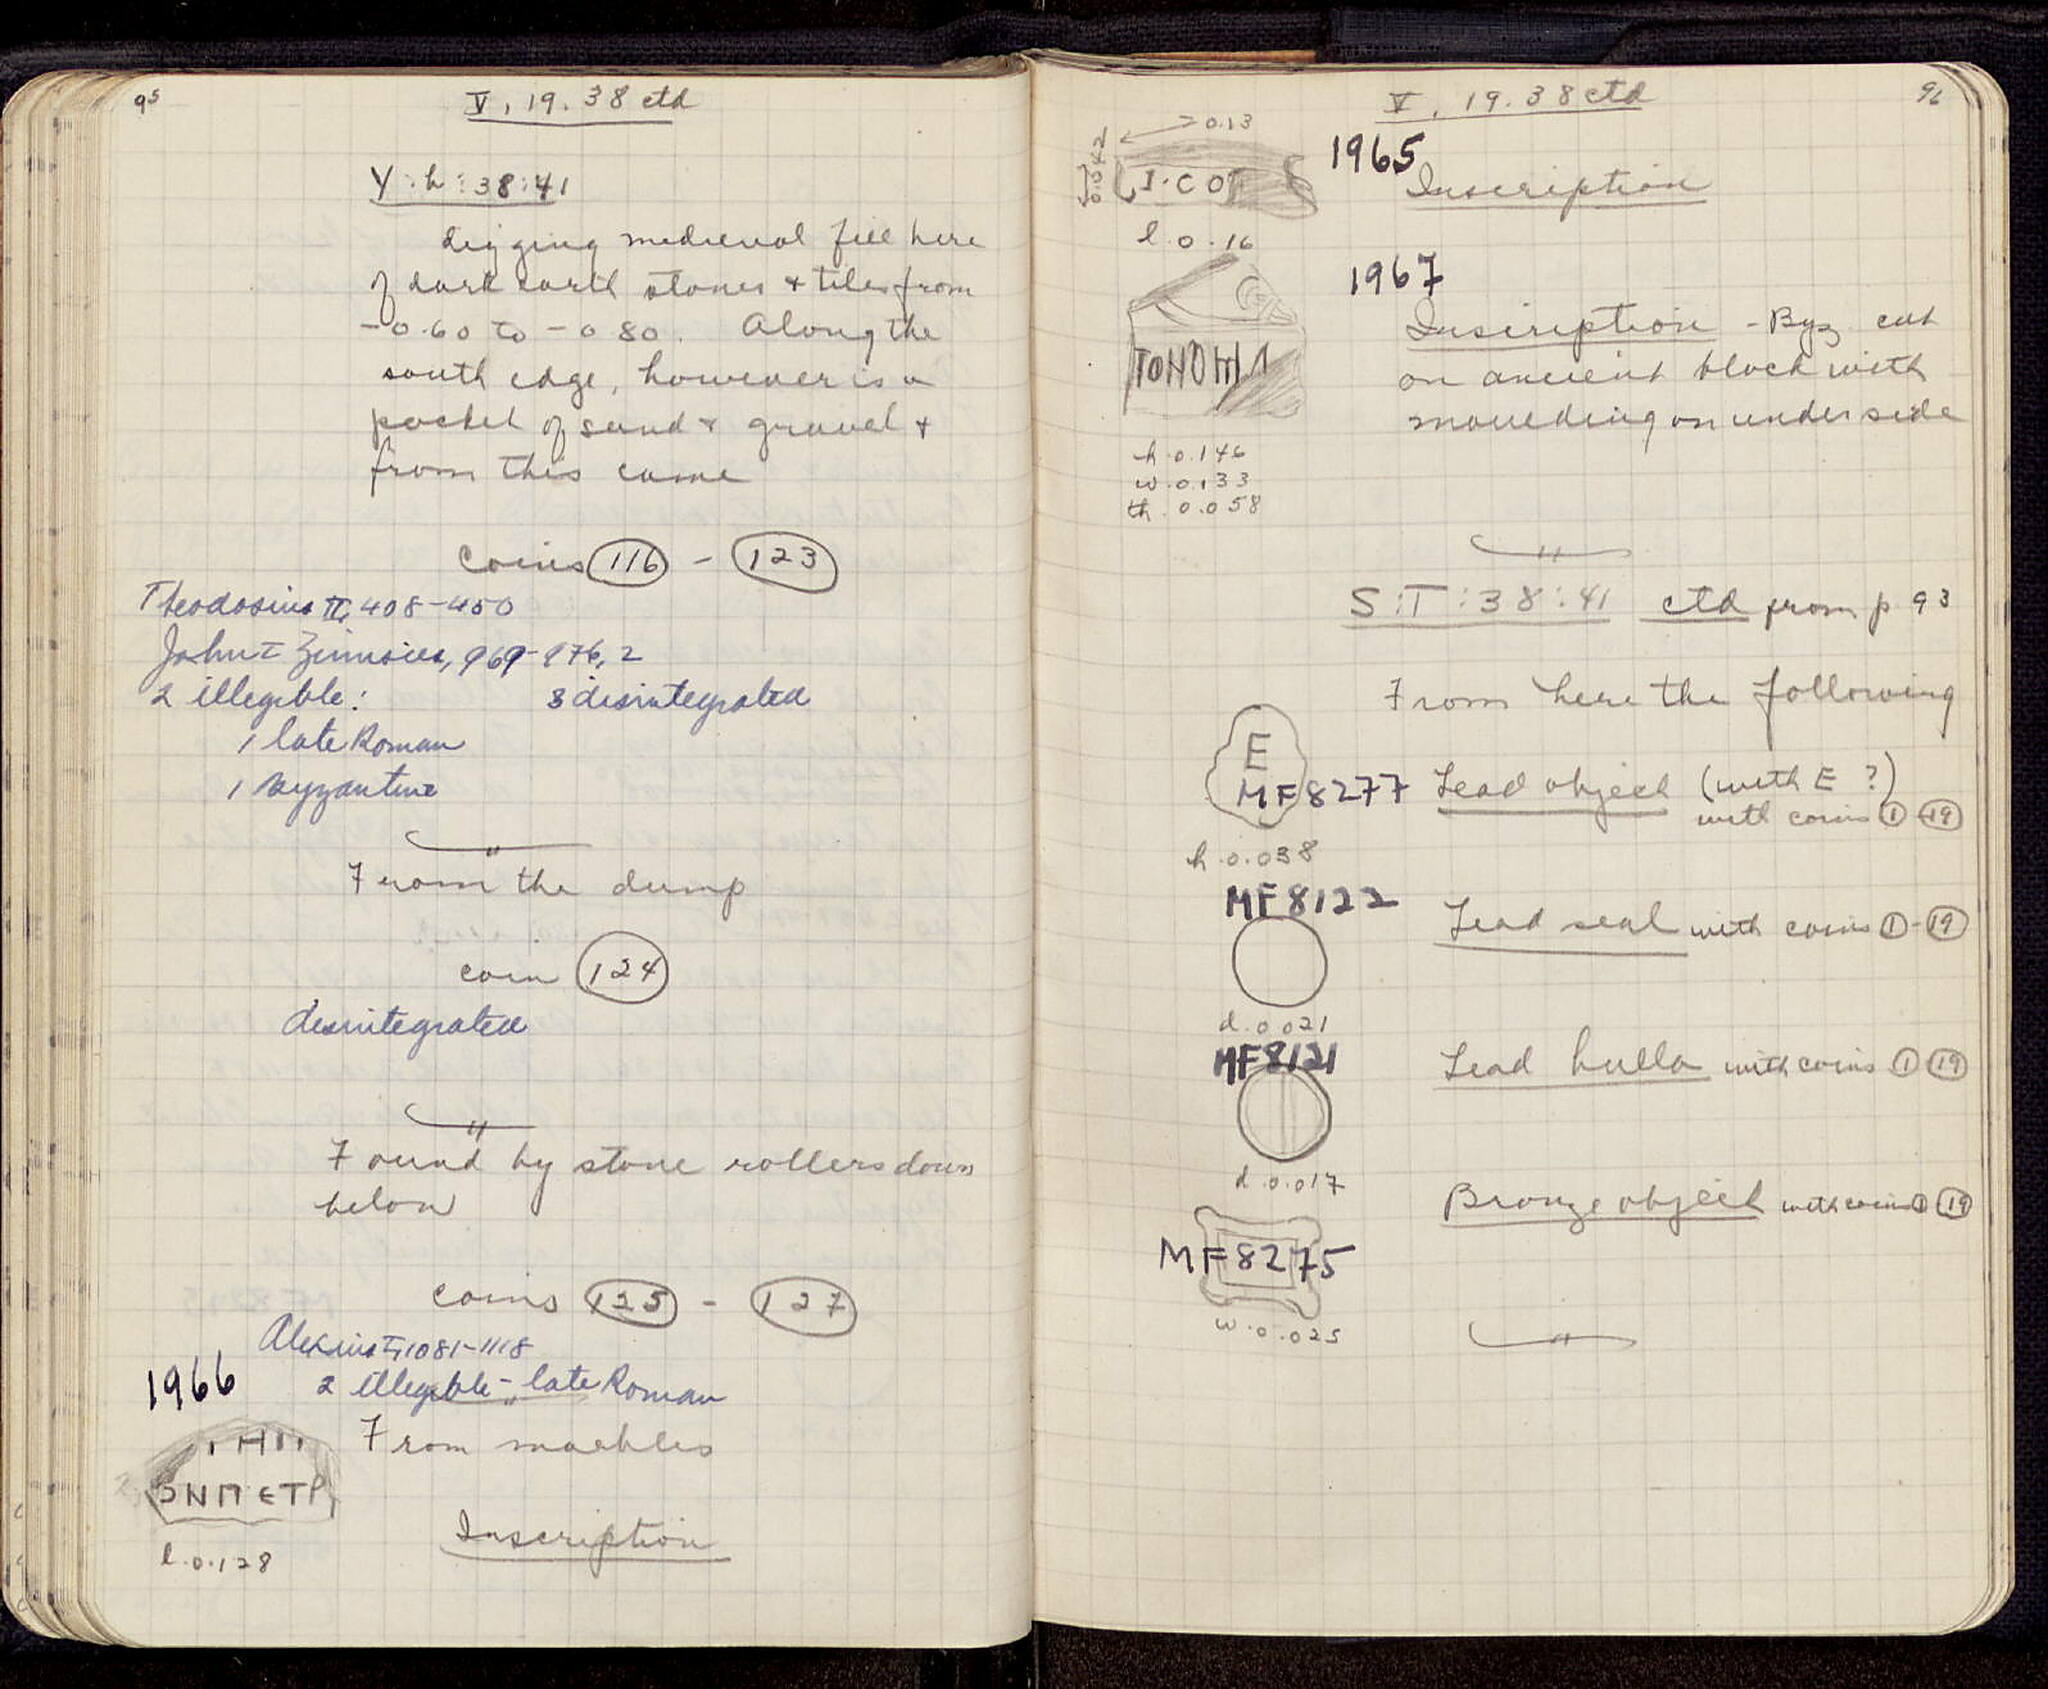 95
V, 19. 38 ctd
Y:h:38:41
digging medieval fill here
of dark earth stones + tiles from
-0.60 to -0.80. Along the
south edge, however is a
pocket of sand + gravel +
from this came
coins 116 - 123
Theodosius II, 408-450
John I Zimisces, 969-976, 2
2 illegible: 3 disintegrated
1 late Roman
1 Byzantine
From the dump
coin 124
disintegrated
Found by stone rollers down
below
coins 125 - 127
Alexius I, 1081-1118
1966 2 illegible - late Roman
From marbles
ΝΠΕΤΡ
Inscription
l. 0.128
V, 19.38 ctd
96
0.13
0.042
I·CO
1965
Inscription
l. 0.16
1967
Inscription - Byz cut
on ancient block with
moulding on underside
h 0.146
w. 0.133
th. 0.058
S:T:38:41 ctd from p 93
From here the following
E
MF 8277 Lead object (with E ?)
with coins 1 - 19
h 0.038
MF 8122
Lead seal with coins 1 - 19
d. 0.021
MF 8121
Lead bulla with coins 1 19
d. 0.017
Bronze object with coins 1 19
MF 8275
w. 0.025